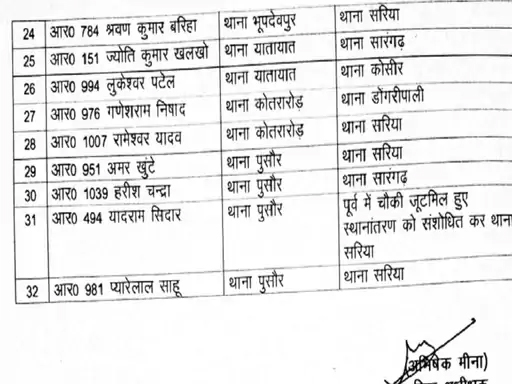 24 आर0 784 श्रवण कुमार बरिहा थाना भूपदेवपुर थाना सरिया
25 आर0 151 ज्योति कुमार खलखो थाना यातायात थाना सारंगढ़
26 आर0 994 लुकेश्वर पटेल थाना यातायात थाना कोसीर
27 आर0 976 गणेशराम निषाद थाना कोतरारोड़ थाना डोंगरीपाली
28 आर0 1007 रामेश्वर यादव थाना कोतरारोड़ थाना सरिया
29 आर0 951 अमर खुंटे थाना पुसौर थाना सरिया
30 आर0 1039 हरीश चन्द्रा थाना पुसौर थाना सारंगढ़
31 आर0 494 यादराम सिदार थाना पुसौर पूर्व में चौकी जूटमिल हुए
स्थानांतरण को संशोधित कर थाना
सरिया
32 आर0 981 प्यारेलाल साहू थाना पुसौर थाना सरिया
(अभिषेक मीना)